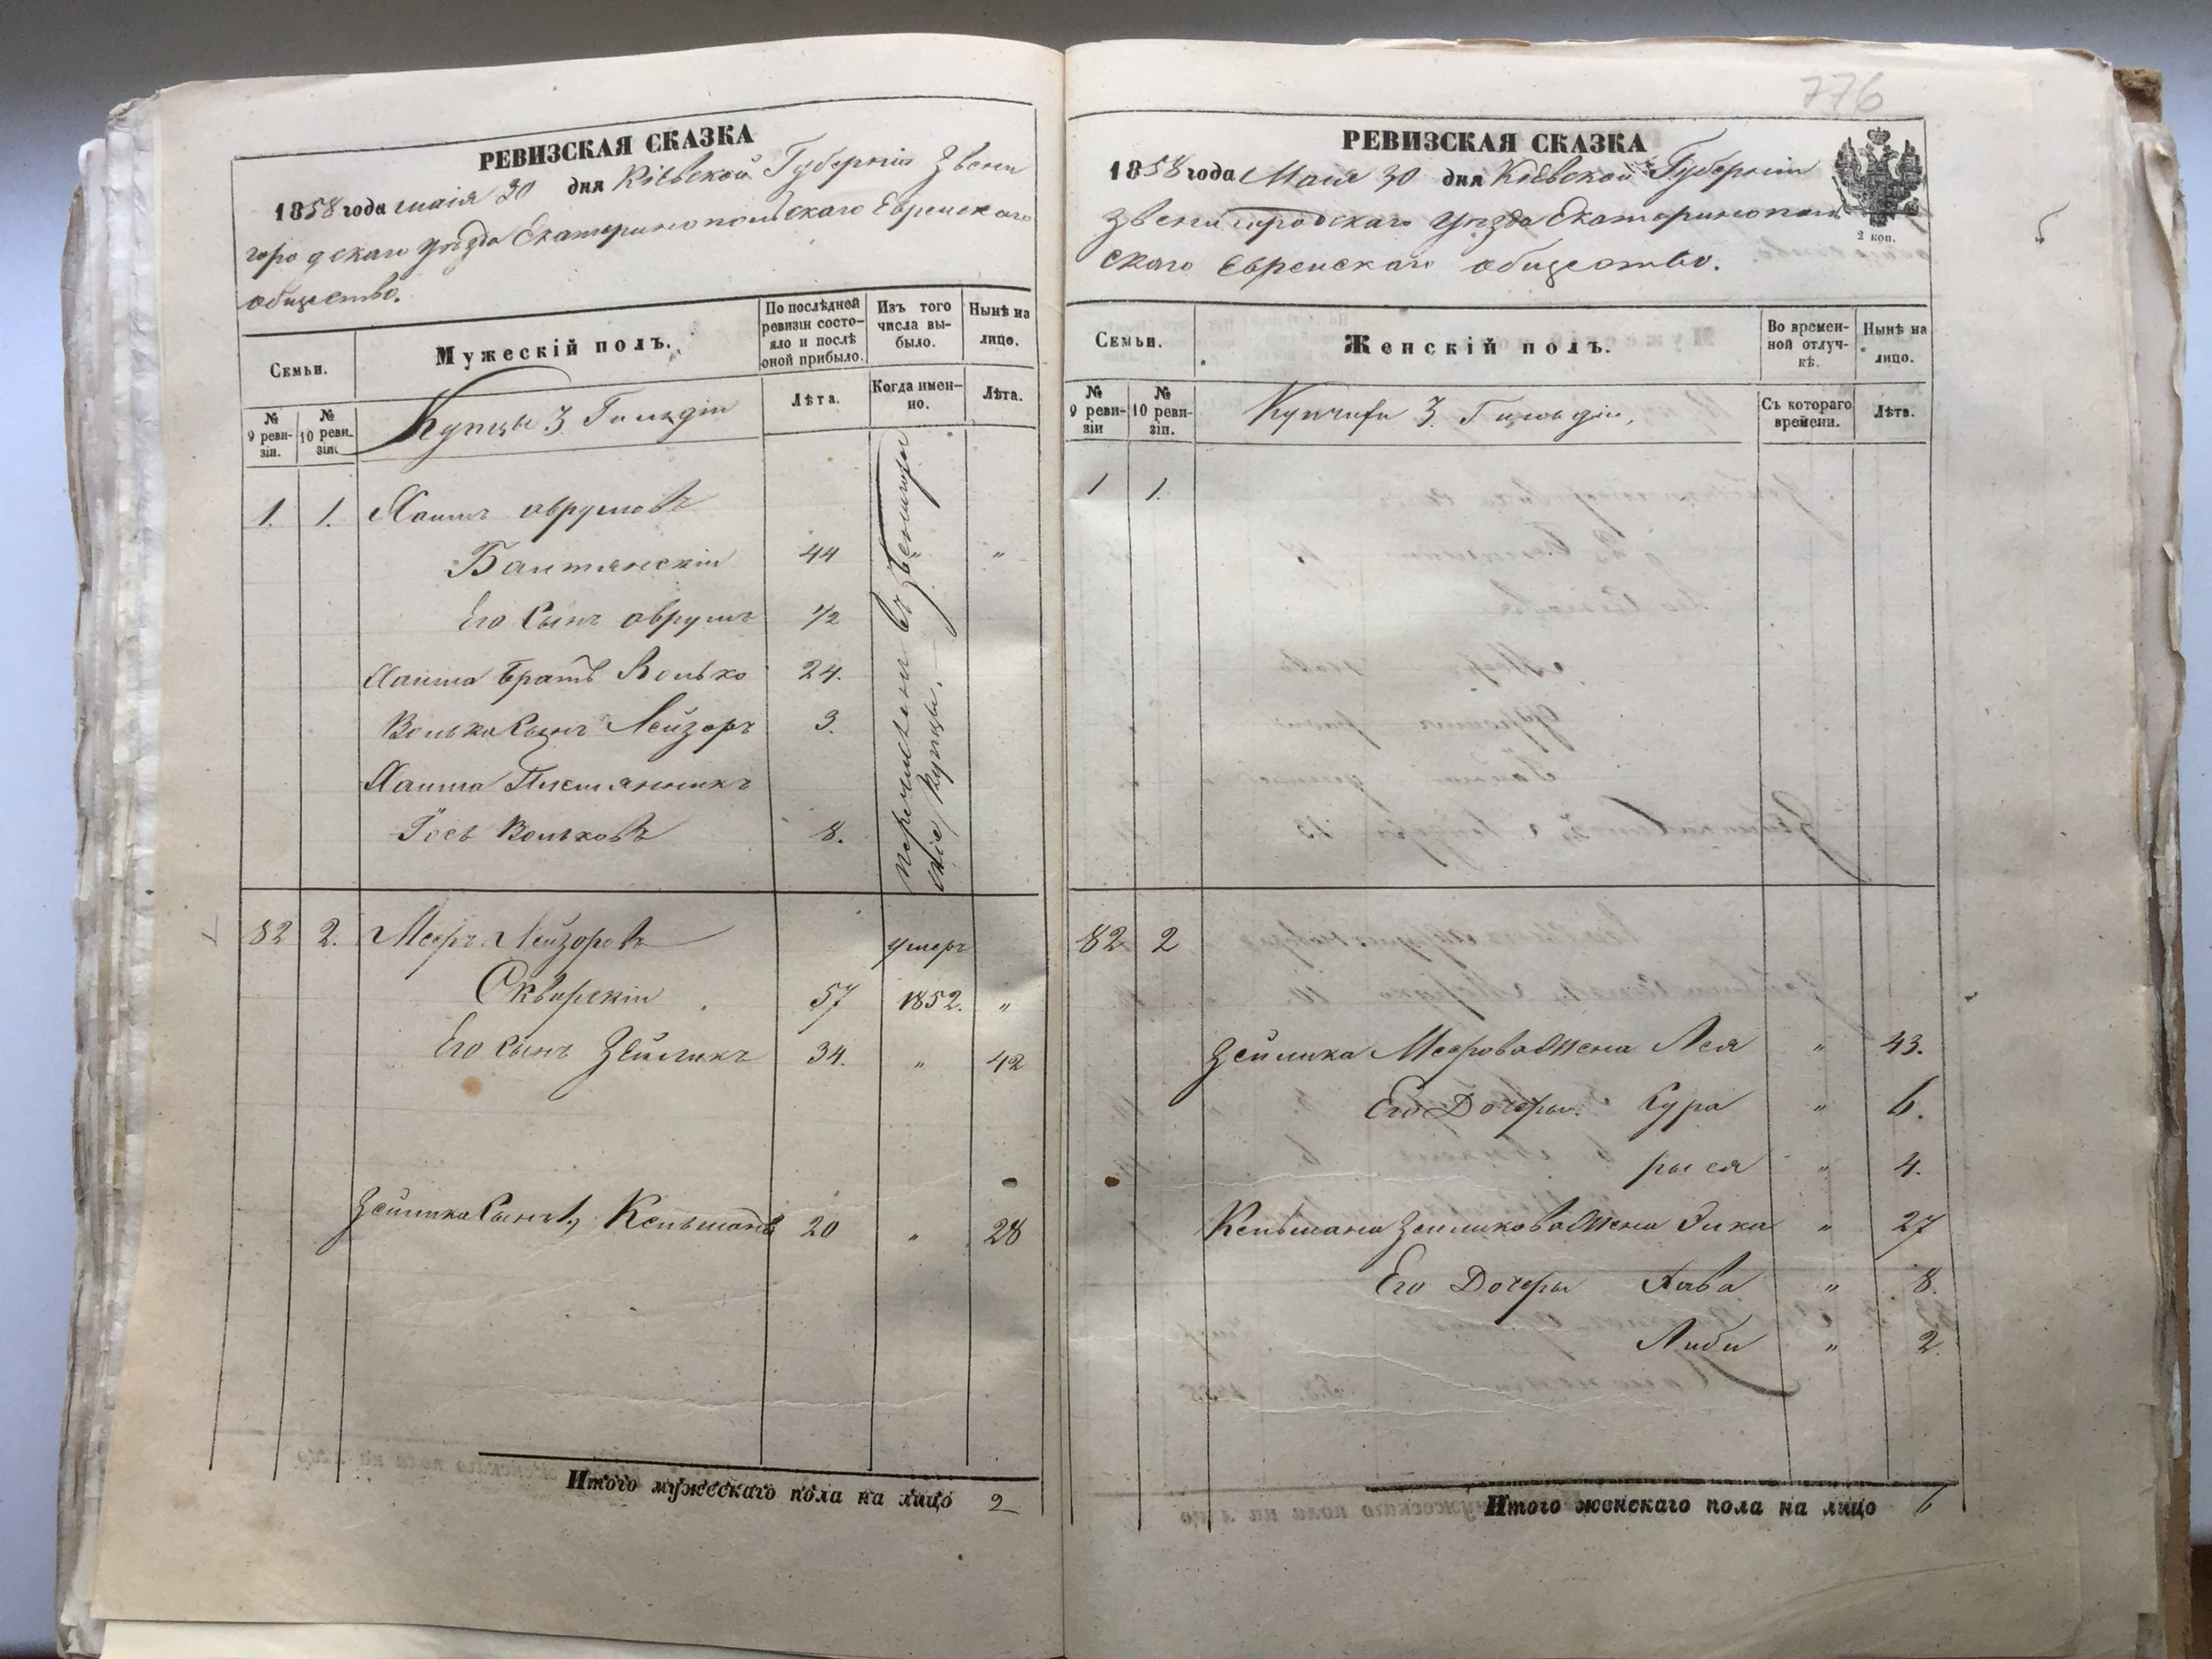 РЕВИЗСКАЯ СКАЗКА
1858 года маія 30 дня Кіевской Губерніи Звени
городскаго уѣзда Екатеринопольскаго Еврейскаго
общество.
Семьи.
Мужескій полъ.
По послѣдней ревизіи состо-яло и послѣ оной прибыло.
Изъ того числа вы-было.
Нынѣ на лицо.
№ 9 реви-зіи.
№ 10 реви-зіи.
Купцы 3. Гильдіи
Лѣта.
Когда имен-но.
Лѣта.
1. 1. Хаимъ Аврумовъ
Балтянскій 44 " "
Его Сынъ Аврумъ 1/2
Хаима братъ Волько 24.
Волька Сынъ Лейзоръ 3.
Хаима Племянникъ
Іось Вольковъ 8.
перечислены въ Звенигород
скіе Купцы.
82 2. Мееръ Лейзоровъ умеръ
Сквирскій 57 1852. "
Его сынъ Зейликъ 34. " 42
Зейлика Сынъ 1, Кельманъ 20 " 28
Итого мужескаго пола на лицо 2
776
РЕВИЗСКАЯ СКАЗКА
1858 года Маія 30 дня Кіевской Губерніи
Звенигородскаго уѣзда Екатеринополь
скаго Еврейскаго общество.
2 коп.
Семьи.
Женскій полъ.
Во времен-ной отлуч-кѣ.
Нынѣ на лицо.
№ 9 реви-зіи
№ 10 реви-зіи.
Купчихи 3. Гильдіи,
Съ котораго времени.
Лѣта.
1 1.
82 2
Зейлика Меерова Жена Лея " 43.
Его Дочеры. Сура " 6.
рыся " 4.
Кельмана Зейликова Жена Элка " 27
Его Дочеры Хава " 8.
Либи " 2.
Итого женскаго пола на лицо 6